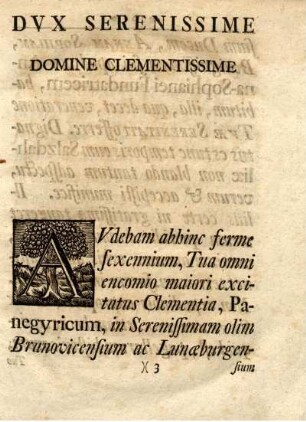 DVX SERENISSIME
DOMINE CLEMENTISSIME
AVdebam abhinc ferme
ſexennium, Tua omni
encomio maiori exci-
tatus Clementia, Pa-
negyricum, in Sereniſſimam olim
Brunovicenſium ac Lunæburgen-
)( 3 ſium